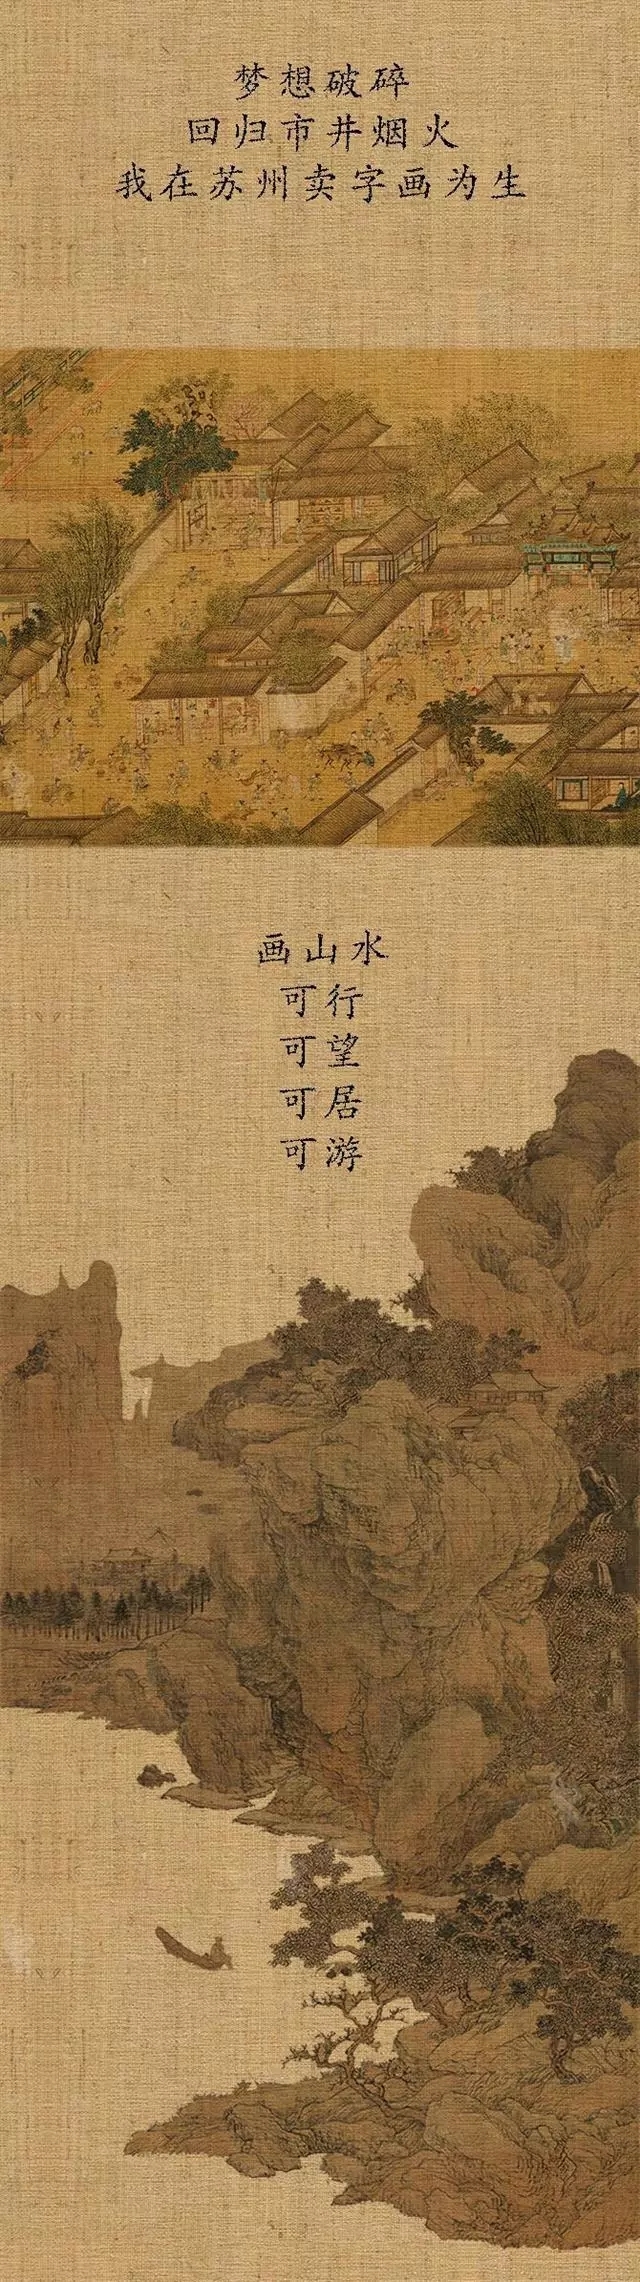 梦想破碎
回归市井烟火
我在苏州卖字画为生
画山水
可行
可望
可居
可游